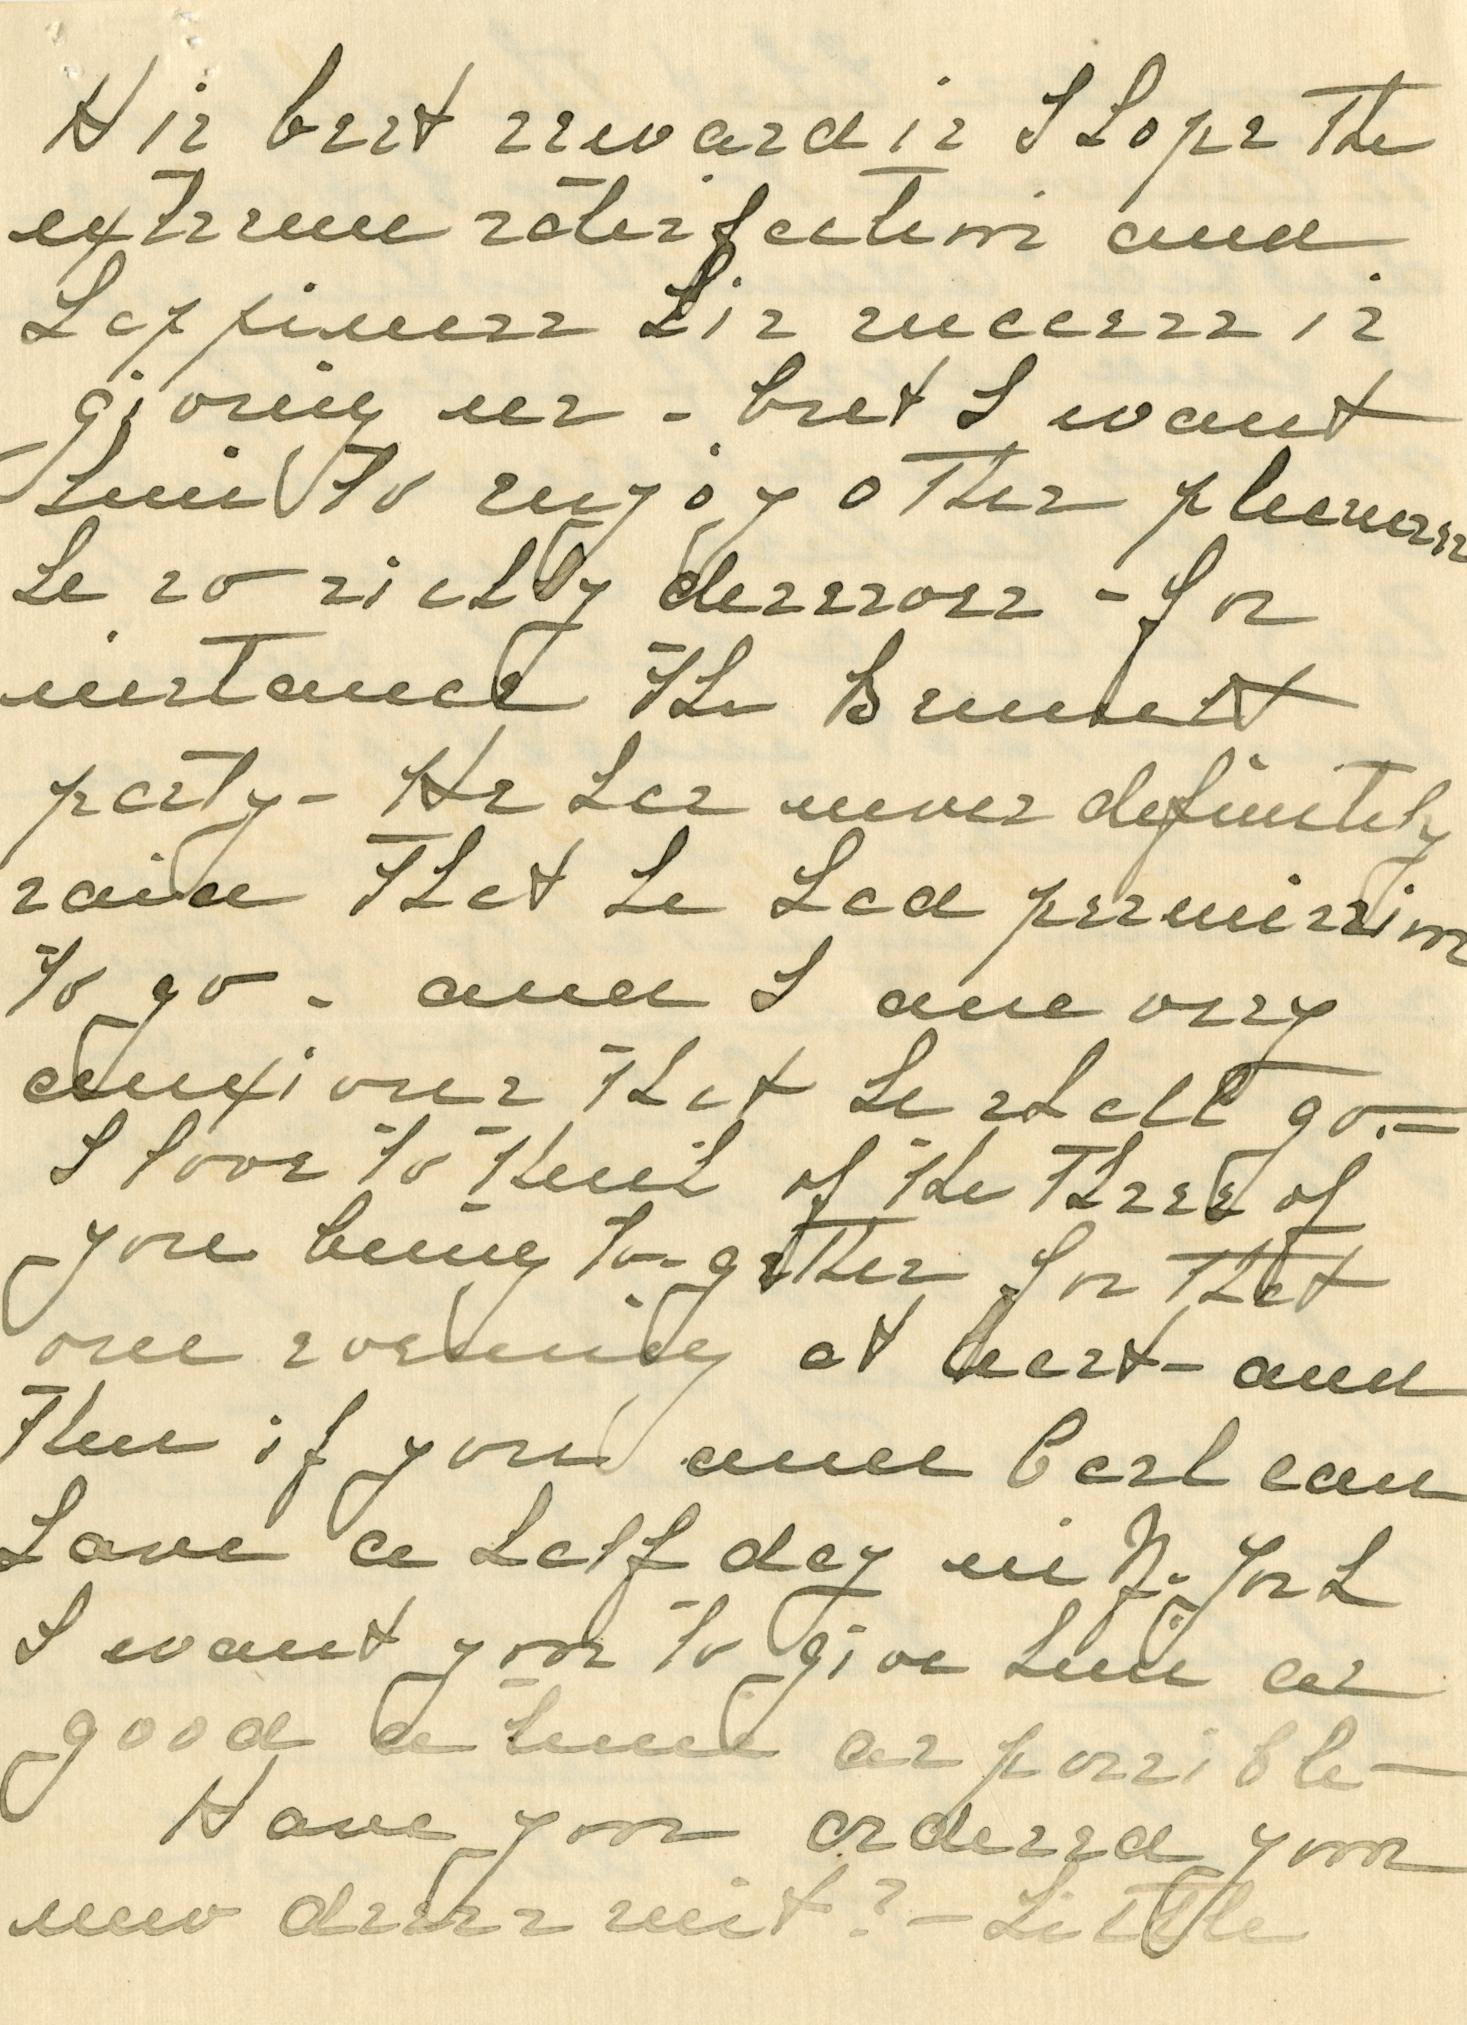 His best reward is I hope the
extreme satisfaction and
happiness his success is
giving us - but I want
him to enjoy other pleasures
he so richly deserves - for
instance the Bennett
party - He has never definitely
said that he had permission
to go - and I am very
anxious that he shall go. =
I love to think of the three of
you being to-gether for that
one evening at least - and
then if you and Carl can
have a half day in N. York
I want you to give him as
good a time as possible -
Have you ordered your
new dress suit? - Little